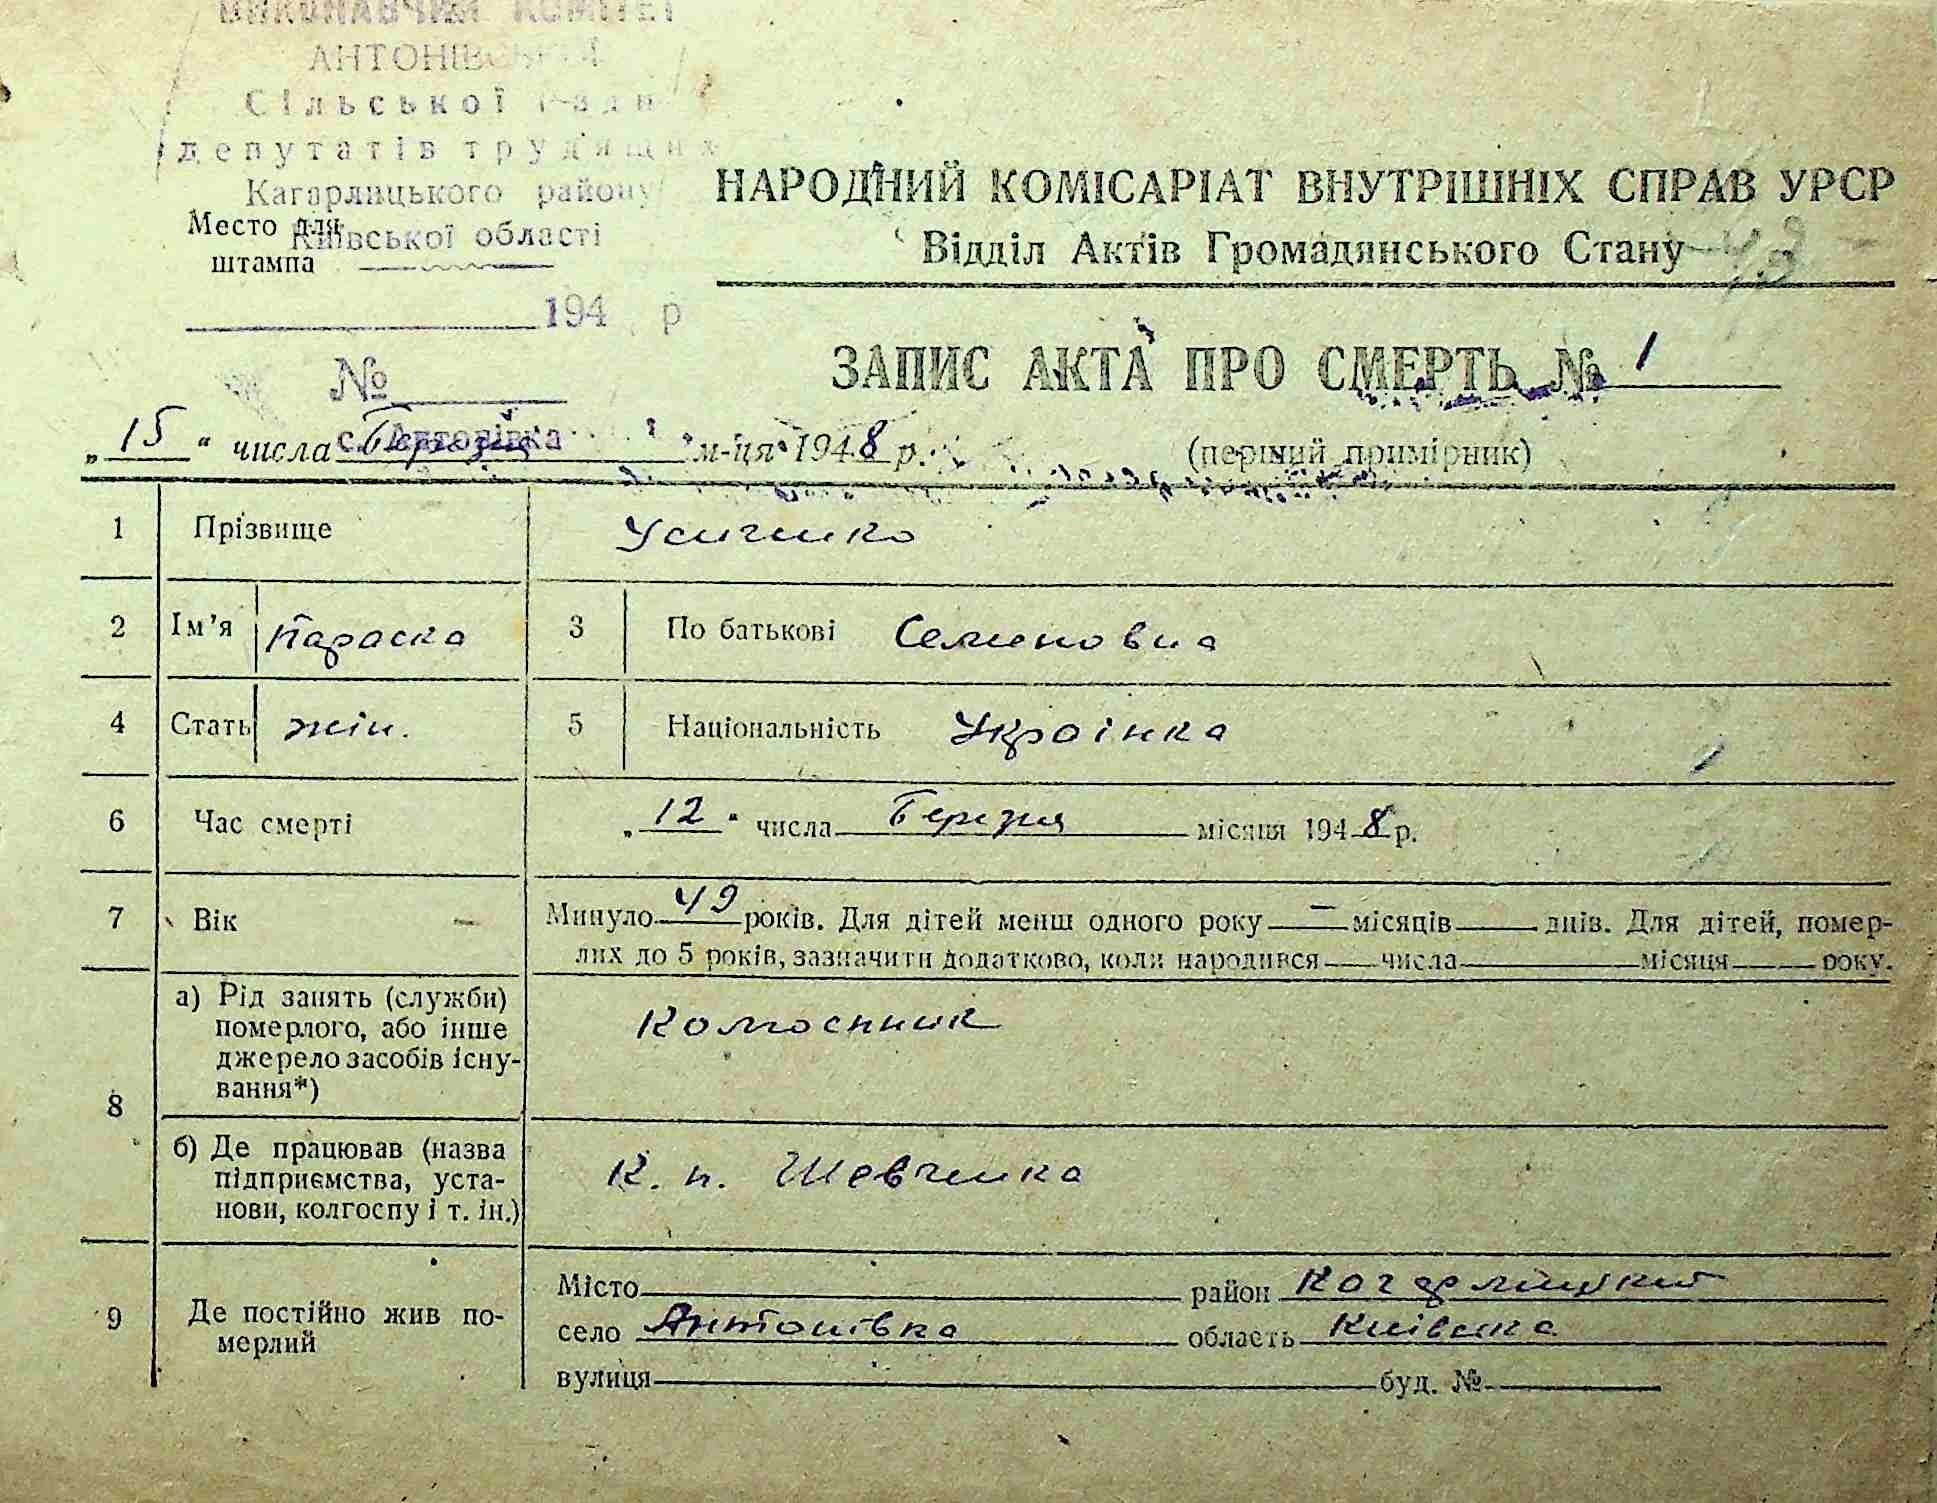 ВИКОНАВЧИЙ КОМІТЕТ
АНТОНІВСЬКА
Сільської Ради
депутатів трудящих
Кагарлицького району
Київської області
Место для
штампа
194 р
№
с. Антонівка
НАРОДНИЙ КОМІСАРІАТ ВНУТРІШНІХ СПРАВ УРСР
Відділ Актів Громадянського Стану
ЗАПИС АКТА ПРО СМЕРТЬ № 1
„15“ числа Березня м-ця 1948 р.
(перший примірник)
1 Прізвище Усиченко
2 Ім'я Параска 3 По батькові Семеновна
4 Стать жін. 5 Національність Українка
6 Час смерті „12“ числа Березня місяця 1948 р.
7 Вік Минуло 49 років. Для дітей менш одного року — місяців днів. Для дітей, помер-
лих до 5 років, зазначити додатково, коли народився числа місяця року.
8 а) Рід занять (служби)
померлого, або інше
джерело засобів існу-
вання*)
Колгоспник
б) Де працював (назва
підприємства, уста-
нови, колгоспу і т. ін.)
К. п. Шевченка
9 Де постійно жив по-
мерлий
Місто район Кагарлицький
село Антонівка область Київська
вулиця буд. №